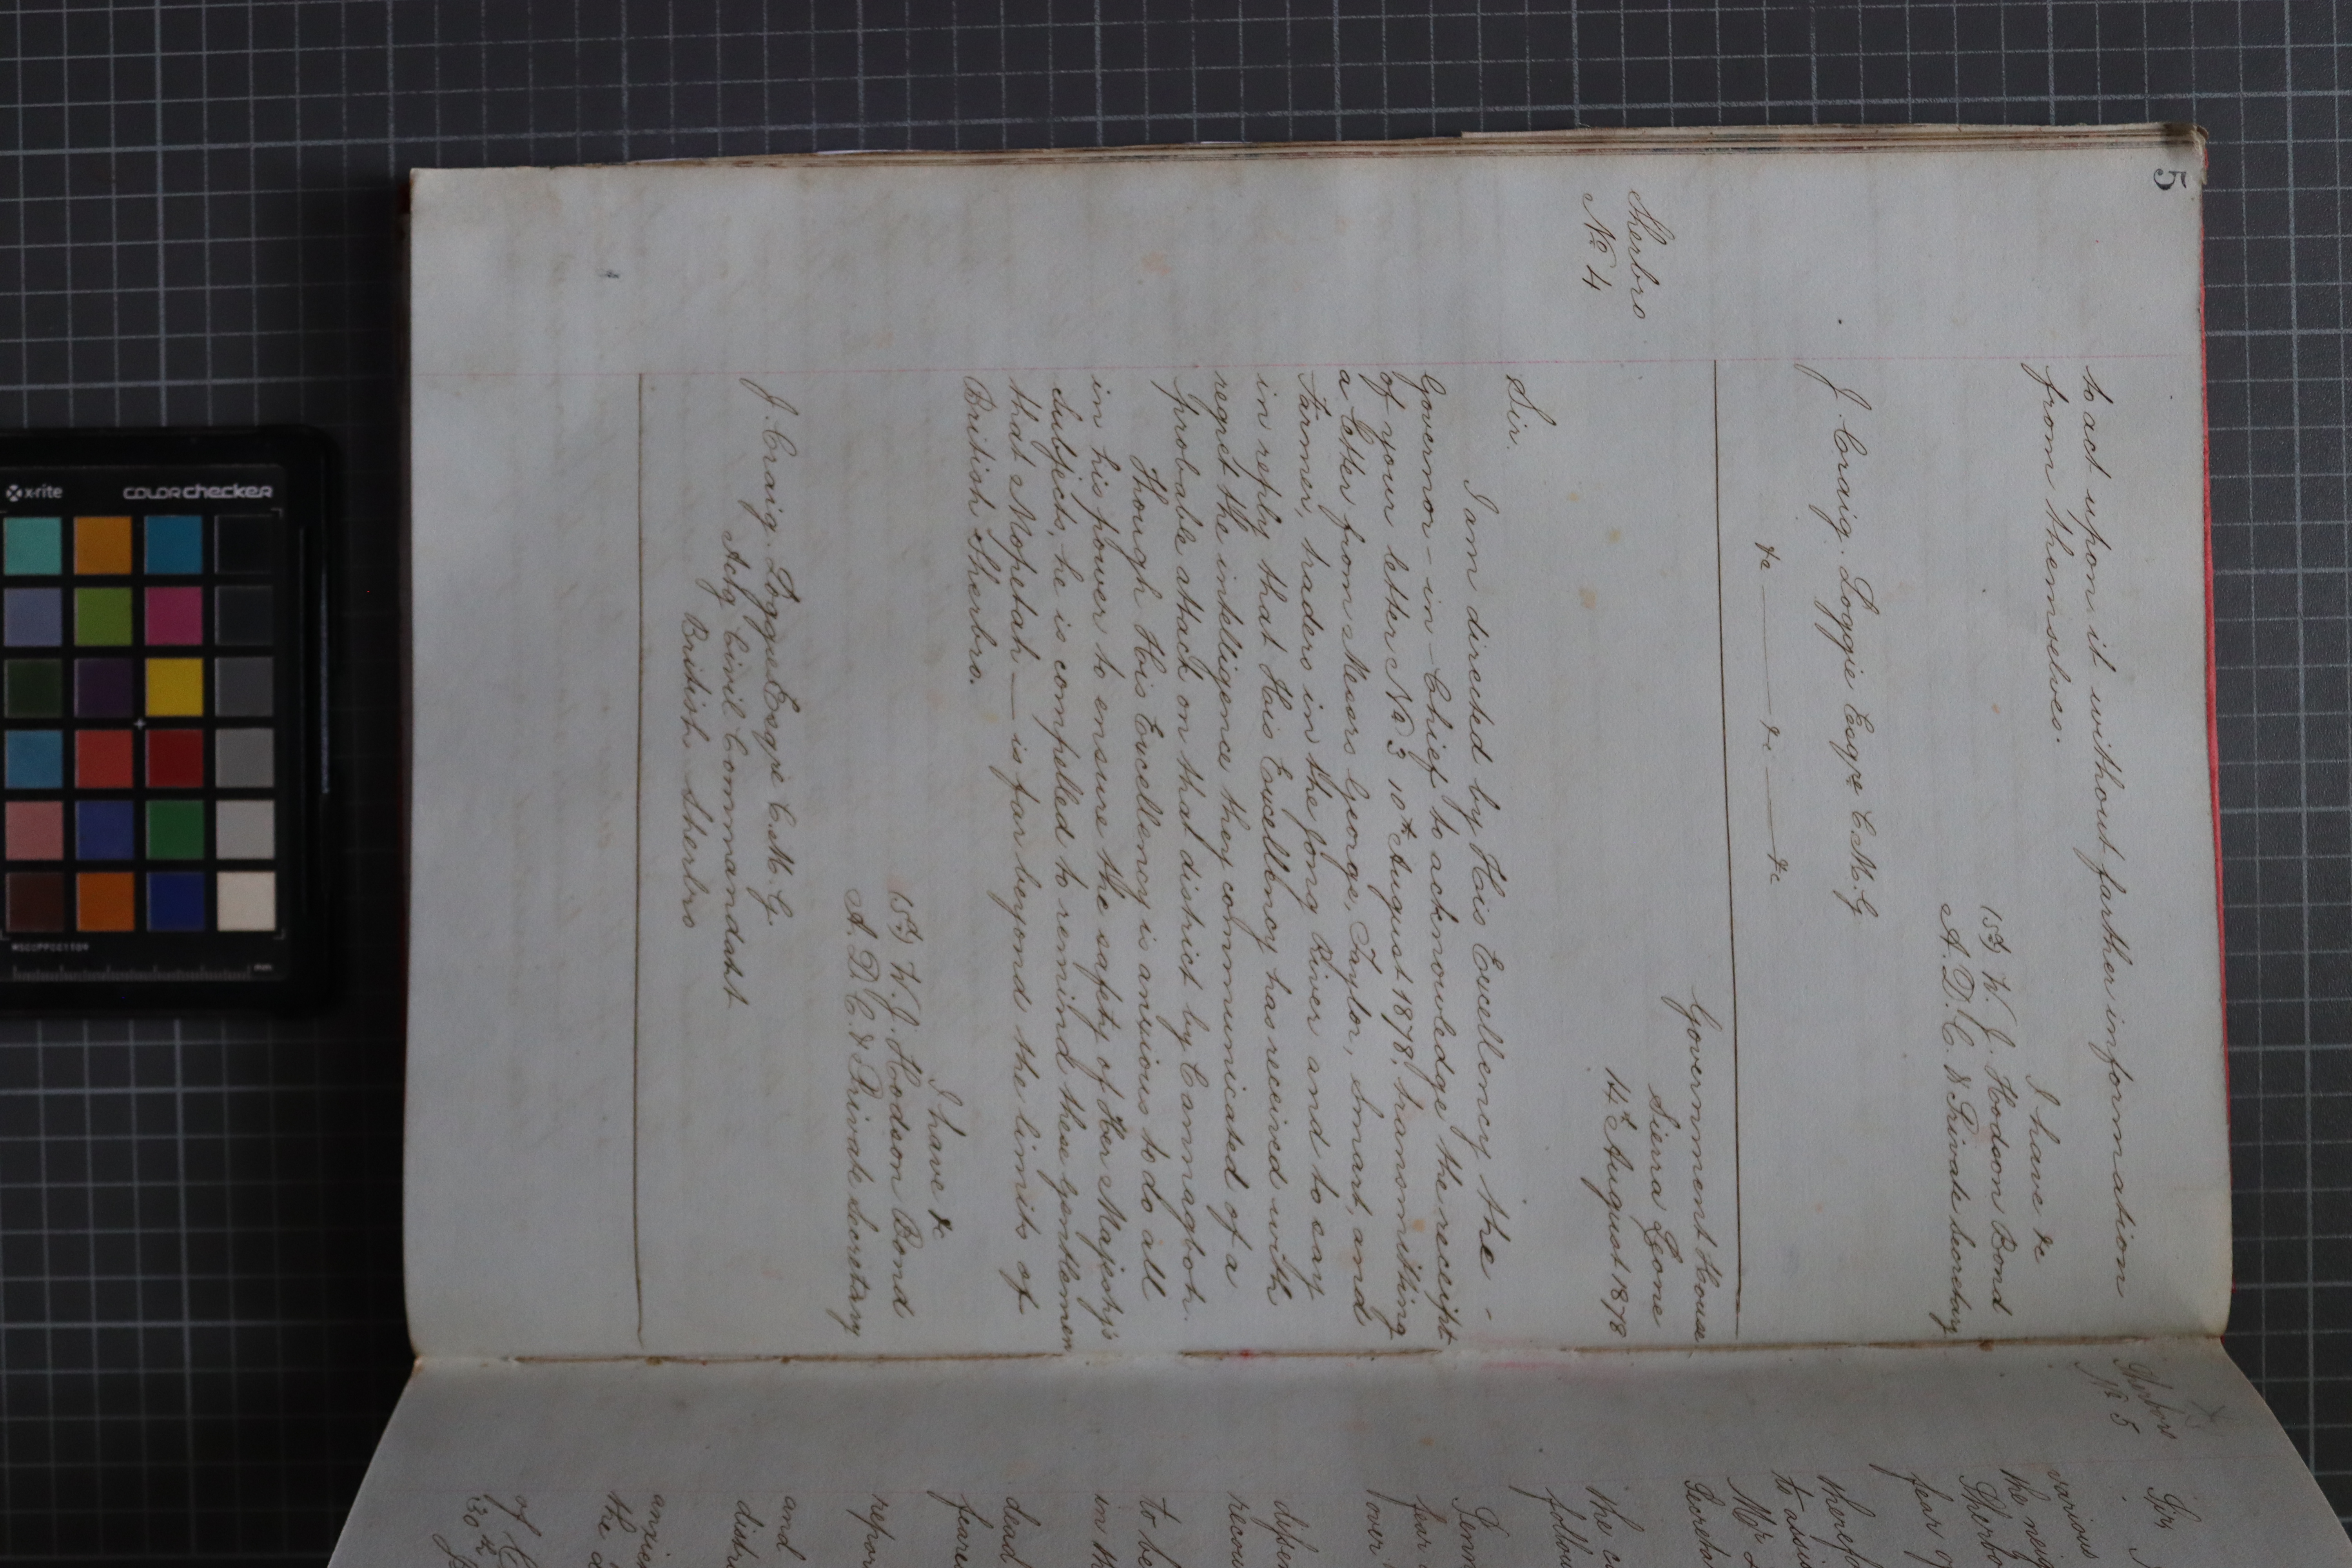 5
to act upon it without farther information
from themselves.
I have &c
(Sd) W. J. Hodson Bond
A. D. C. & Private Secretary
J. Craig. Loggie Esqre C. M. G
&c &c &c
Sherbro
No 4
Government House
Sierra Leone
14th August 1878
Sir.
I am directed by His Excellency the -
Governor - in - Chief to acknowledge the receipt
of your letter No 3 10th August 1878. transmitting
a letter from Messrs George, Taylor, Smart, and
Farmer, traders in the Jong River and to say
in reply that His Excellency has received with
regret the intelligence they communicated of a
probable attack on that district by Canragboh.
Though His Excellency is anxious to do all
in his power to ensure the safety of Her Majesty's
Subjects, he is compelled to remind these gentlemen
that Mopetah — is far beyond the limits of
British Sherbro.
I have &c
(Sd) W. J. Hodson Bond
A. D. C. & Private Secretary
J. Craig. Loggie Esqre C. M. G.
Actg Civil Commandant
British Sherbro
No 5
various
fear
Mr
the c
follow
fear
over
to be
in th
dead
and
of
x-rite
colorchecker
mm